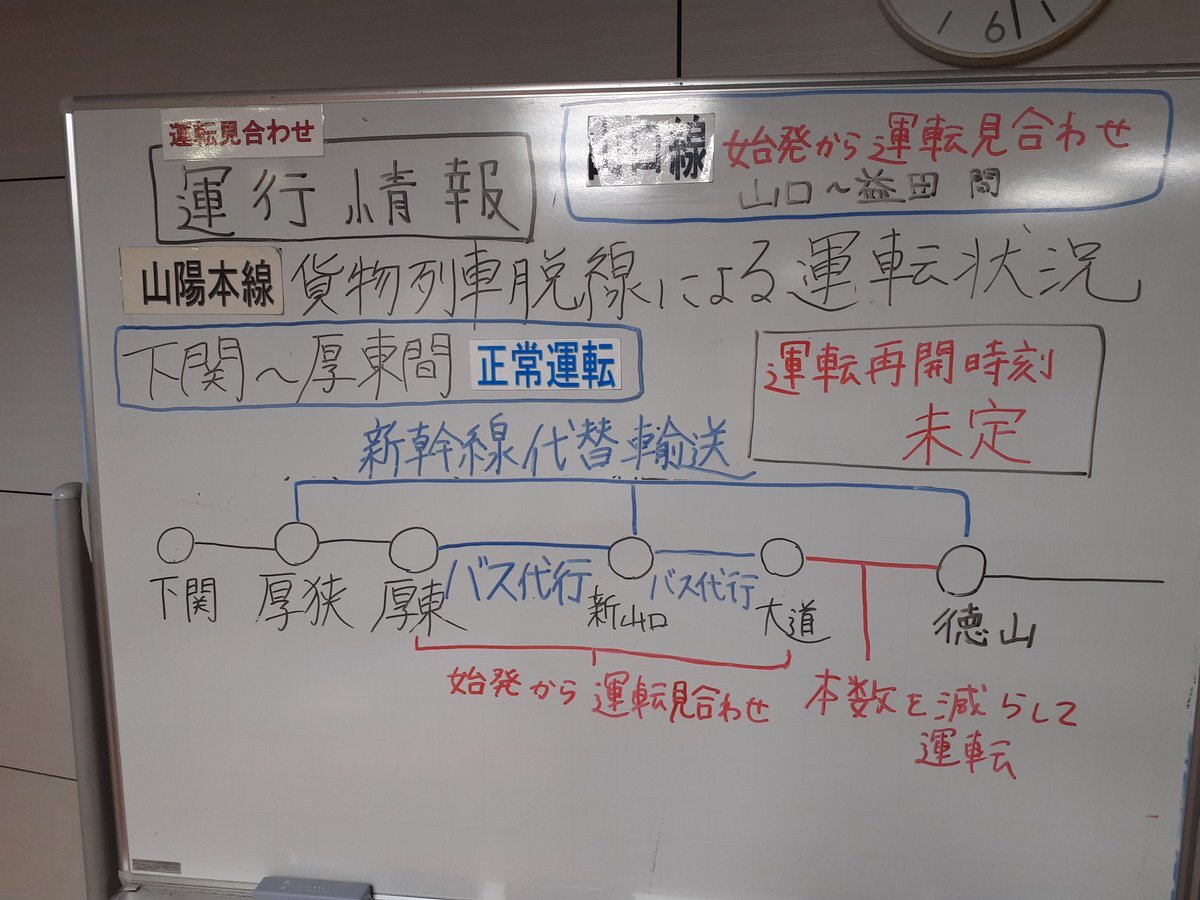 運転見合わせ
運行情報
山口線 始発から運転見合わせ
山口〜益田間
山陽本線 貨物列車脱線による運転状況
下関〜厚東間 正常運転
運転再開時刻
未定
新幹線代替輸送
下関 厚狭 厚東 バス代行 新山口 バス代行 大道 徳山
始発から運転見合わせ
本数を減らして
運転
6